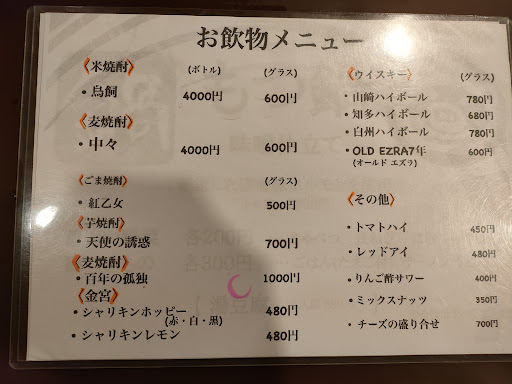 お飲物メニュー
《米焼酎》 (ボトル) (グラス)
・鳥飼 4000円 600円
《麦焼酎》
・中々 4000円 600円
《ごま焼酎》 (グラス)
・紅乙女 500円
《芋焼酎》
・天使の誘惑 700円
《麦焼酎》
・百年の孤独 1000円
《金宮》
・シャリキンホッピー 480円
(赤・白・黒)
・シャリキンレモン 480円
《ウイスキー》 (グラス)
・山崎ハイボール 780円
・知多ハイボール 680円
・白州ハイボール 780円
・OLD EZRA7年 600円
(オールド エズラ)
《その他》
・トマトハイ 450円
・レッドアイ 480円
・りんご酢サワー 400円
・ミックスナッツ 350円
・チーズの盛り合せ 700円